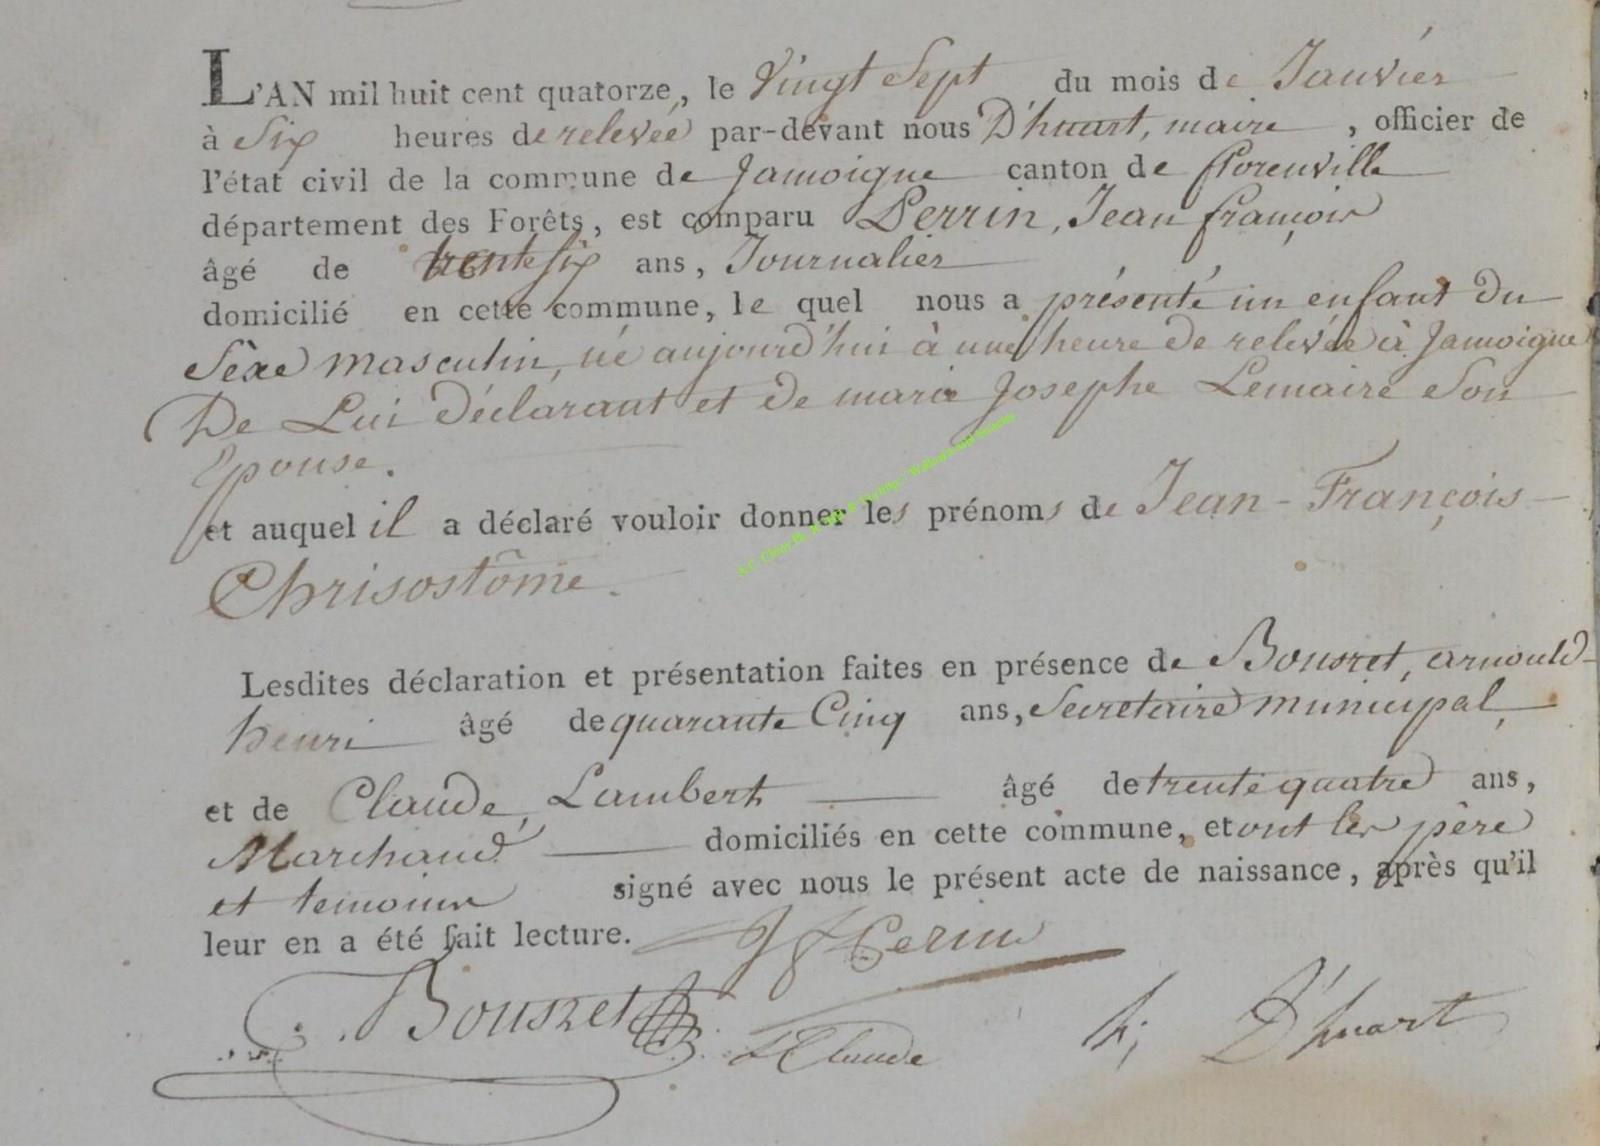 L'AN mil huit cent quatorze, le Vingt Sept du mois de Janvier
à Six heures de relevée par-devant nous D'huart, maire, officier de
l'état civil de la commune de Jamoigne canton de florenville
département des Forêts, est comparu Perrin, Jean françois
âgé de trente six ans, Journalier
domicilié en cette commune, le quel nous a présenté un enfant du
Sèxe masculin, né aujourd'hui à une heure de relevée à Jamoigne
De Lui déclarant et de marie Josephe Lemaire Son
Epouse.
et auquel il a déclaré vouloir donner les prénoms de Jean-François
Chrisostôme.
Lesdites déclaration et présentation faites en présence de Bousret, arnould
henri âgé de quarante Cinq ans, Secretaire municipal,
et de Claude, Lambert âgé de trente quatre ans,
Marchand domiciliés en cette commune, et ont les père
et temoins signé avec nous le présent acte de naissance, après qu'il
leur en a été fait lecture. J F Perin
Bousret L Claude h; D'huart